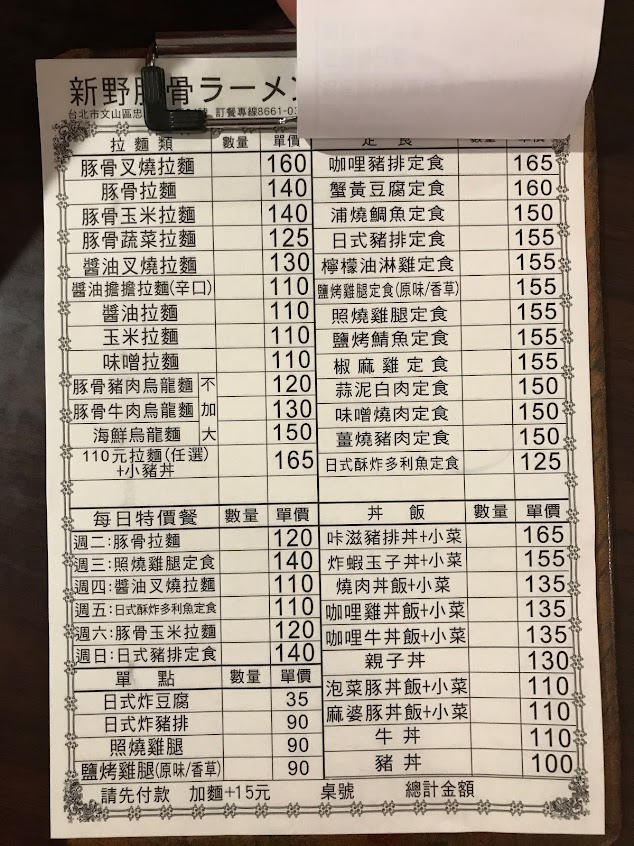 新野豚骨ラーメン
台北市文山區忠 訂餐專線8661-03
拉麵類 數量 單價
豚骨叉燒拉麵 160
豚骨拉麵 140
豚骨玉米拉麵 140
豚骨蔬菜拉麵 125
醬油叉燒拉麵 130
醬油擔擔拉麵(辛口) 110
醬油拉麵 110
玉米拉麵 110
味噌拉麵 110
豚骨豬肉烏龍麵 不 120
豚骨牛肉烏龍麵 加 130
海鮮烏龍麵 大 150
110元拉麵(任選)
+小豬丼 165
定食 數量 單價
咖哩豬排定食 165
蟹黃豆腐定食 160
浦燒鯛魚定食 150
日式豬排定食 155
檸檬油淋雞定食 155
鹽烤雞腿定食(原味/香草) 155
照燒雞腿定食 155
鹽烤鯖魚定食 155
椒麻雞定食 155
蒜泥白肉定食 150
味噌燒肉定食 150
薑燒豬肉定食 150
日式酥炸多利魚定食 125
每日特價餐 數量 單價
週二:豚骨拉麵 120
週三:照燒雞腿定食 140
週四:醬油叉燒拉麵 110
週五:日式酥炸多利魚定食 110
週六:豚骨玉米拉麵 120
週日:日式豬排定食 140
單點 數量 單價
日式炸豆腐 35
日式炸豬排 90
照燒雞腿 90
鹽烤雞腿(原味/香草) 90
丼飯 數量 單價
咔滋豬排丼+小菜 165
炸蝦玉子丼+小菜 155
燒肉丼飯+小菜 135
咖哩雞丼飯+小菜 135
咖哩牛丼飯+小菜 135
親子丼 130
泡菜豚丼飯+小菜 110
麻婆豚丼飯+小菜 110
牛丼 110
豬丼 100
請先付款 加麵+15元 桌號 總計金額